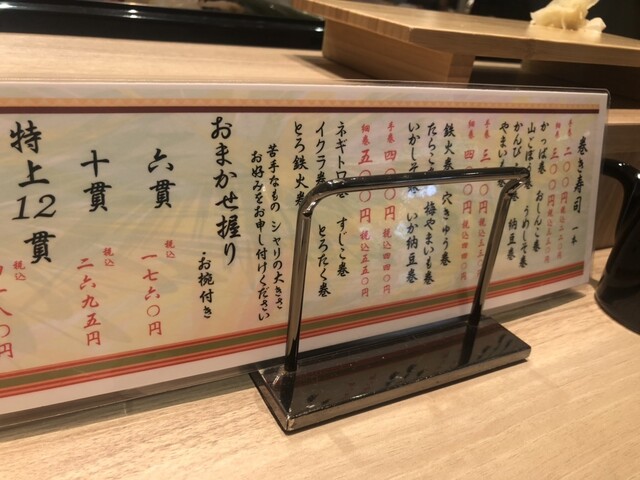 巻き寿司 一本
手巻 二〇〇円
細巻 三〇〇円 税込三三〇円
かっぱ巻 おしんこ巻
山ごぼう巻 うめしそ巻
かんぴょう巻 納豆巻
やまいも巻
手巻 三〇〇円 税込三三〇円
細巻 四〇〇円 税込四四〇円
鉄火巻 穴きゅう巻
たらこ巻 梅やまいも巻
いかしそ巻 いか納豆巻
手巻 四〇〇円 税込四四〇円
細巻 五〇〇円 税込五五〇円
ネギトロ巻 すじこ巻
イクラ巻 とろたく巻
とろ鉄火巻
苦手なもの シャリの大きさ
お好みをお申し付けください
おまかせ握り お椀付き
六貫 税込 一七六〇円
十貫 税込 二六九五円
特上12貫 税込